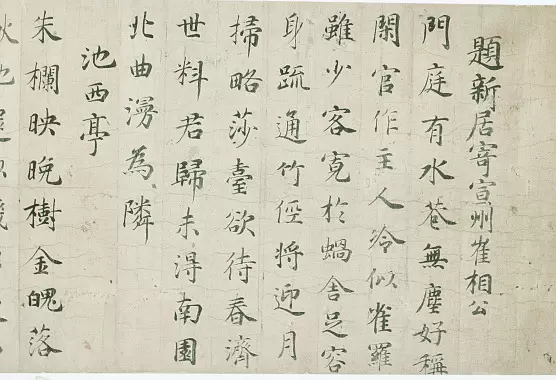 題新居寄宣州崔相公
門庭有水巷無塵好稱
閑官作主人冷似雀羅
雖少客寛於蝸舍足容
身疏通竹徑將迎月
掃略莎臺欲待春濟
世料君歸未得南園
北曲漫為隣
池西亭
朱欄映晚樹金魄落
秋池還似